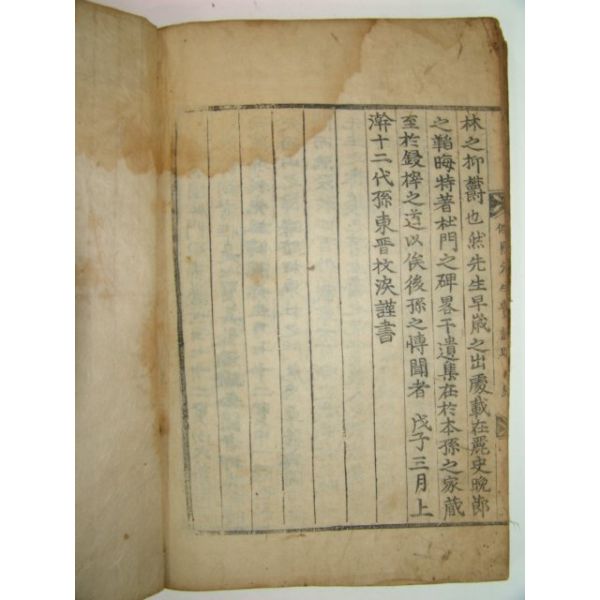 林之抑欝也然先生早歲之出處載在麗史晩節
之韜晦特著杜門之碑畧干遺集在於本孫之家藏
至於鋟榟之道以俟後孫之愽聞者 戊子三月上
澣十二代孫東晋抆淚謹書